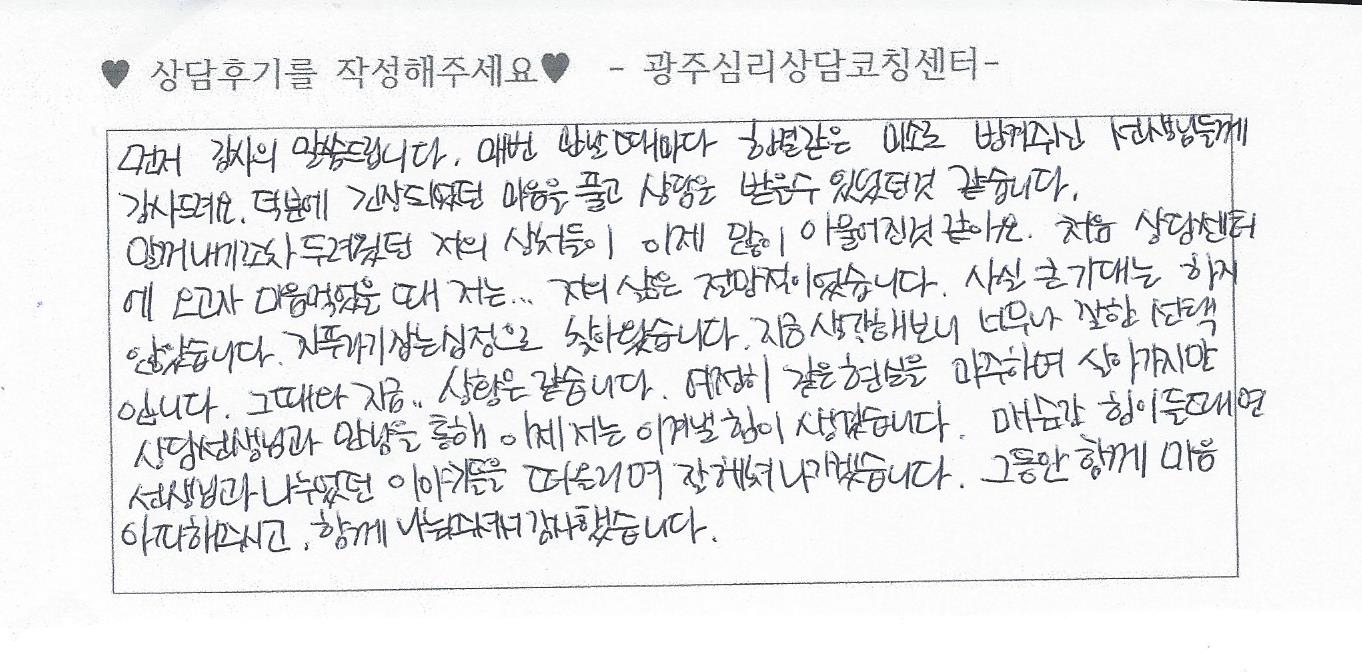 ♥ 상담후기를 작성해주세요♥ - 광주심리상담코칭센터-
먼저 감사의 말씀드립니다. 매번 만날때마다 한결같은 미소로 반겨주신 선생님들께
감사드려요. 덕분에 긴장되었던 마음을 풀고 상담을 받을수 있었던것 같습니다.
말꺼내기조차 두려웠던 저의 상처들이 이제 많이 아물어진것 같아요. 처음 상담센터
에 오고자 마음먹었을 때 저는... 저의 삶은 절망적이었습니다. 사실 큰 기대는 하지
않았습니다. 지푸라기잡는심정으로 찾아왔습니다. 지금생각해보니 너무나 잘한 선택
입니다. 그때와 지금.. 상황은 같습니다. 여전히 같은현실을 마주하며 살아가지만
상담선생님과 만남을 통해 이제 저는 이겨낼힘이 생겼습니다. 매순간 힘이들때면
선생님과나누었던 이야기들을 떠올리며 잘헤쳐나가겠습니다. 그동안함께 마음
아파해주시고, 함께 나눠주셔서감사했습니다.